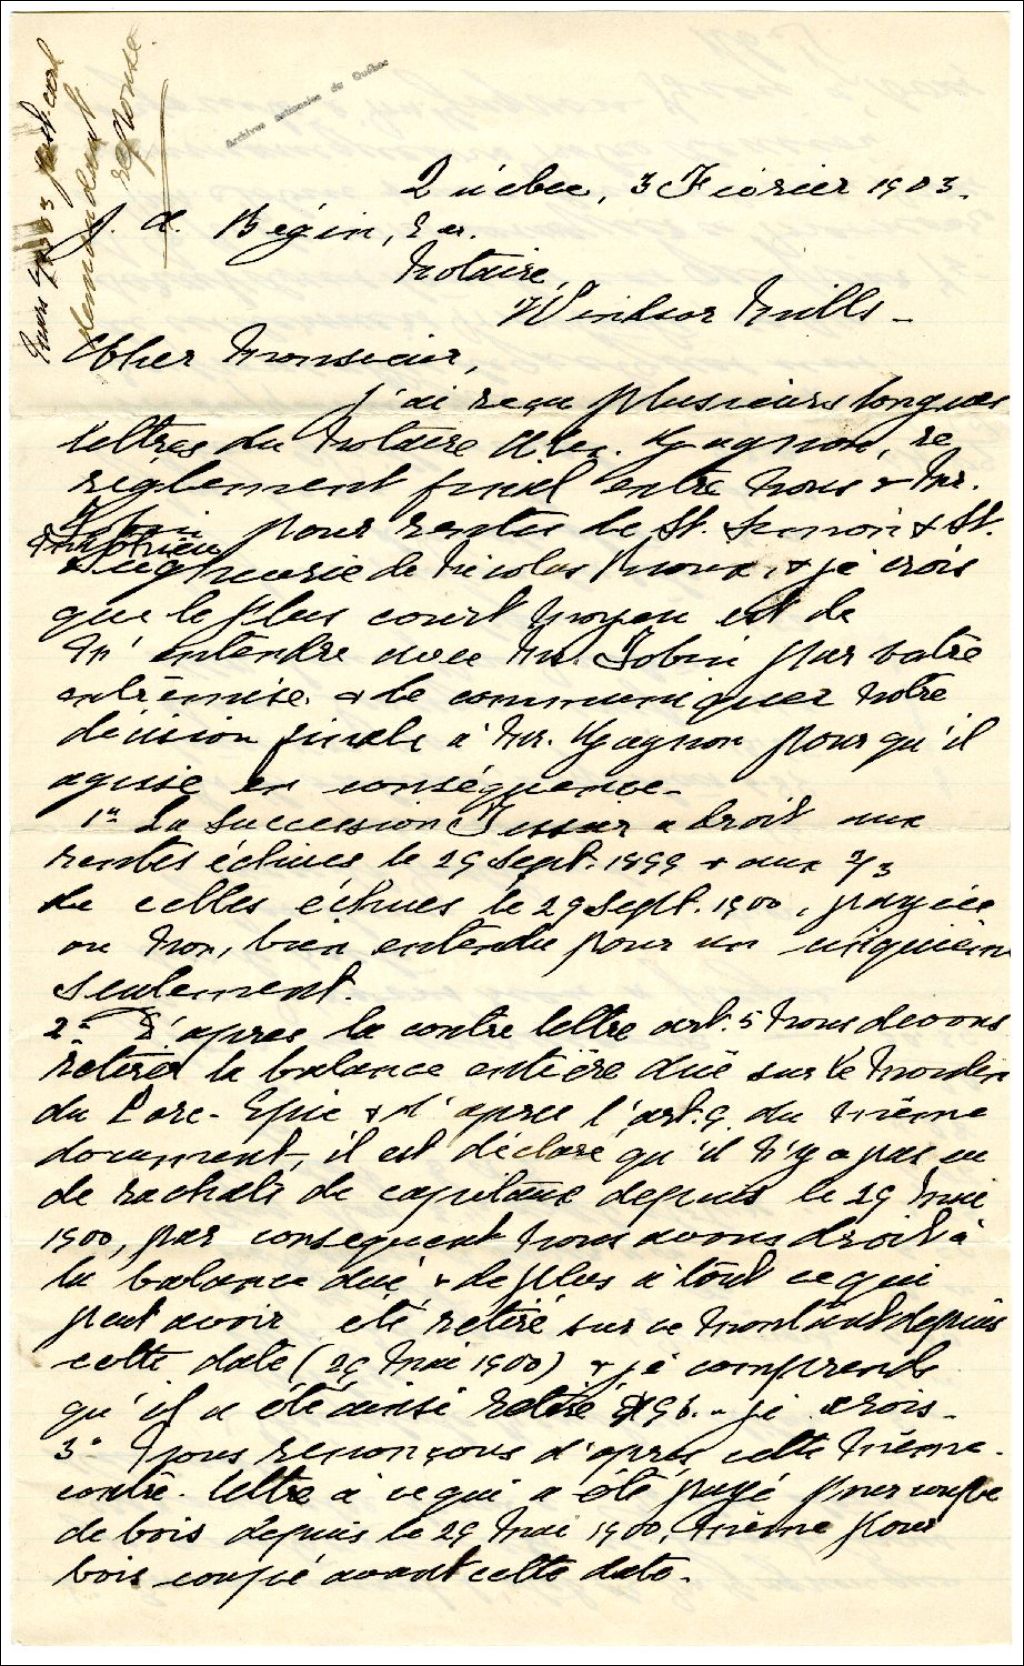 Reçu 9/2/03 post card
demandant
réponse.
Archives nationales du Québec
Québec, 3 Février 1903.
J. A. Bégin, Ecr.
Notaire,
Windsor Mills -
Cher Monsieur,
J'ai reçu plusieurs longues
lettres du Notaire Alex. Gagnon, re
règlement final entre nous & Mr.
Jobin pour rentes de St. Simon & St.
& Mathieu
Seigneurie de Nicolas Rioux, & je crois
que le plus court moyen est de
m'entendre avec Mr. Jobin par votre
entremise & de communiquer notre
décision finale à Mr. Gagnon pour qu'il
agisse en conséquence -
1° La Succession Tessier a droit aux
rentes échues le 29 Sept. 1899 & aux 2/3
de celles échues le 29 Sept. 1900, payées
ou non, bien entendu pour un cinquième
seulement.
2° D'après la contre lettre art. 5 nous devons
retirer la balance entière due sur le moulin
du Porc-Epic & d'après l'art. 9 du même
document, il est déclaré qu'il n'y a pas eu
de rachats de capitaux depuis le 29 Mai
1900, par conséquent nous avons droit à
la balance due & de plus à tout ce qui
peut avoir été retiré sur ce montant depuis
cette date (29 Mai 1900) & je comprends
qu'il a été ainsi retiré $96. - je crois -
3° Nous renonçons d'après cette même
contre-lettre à ce qui a été payé pour coupe
de bois depuis le 29 Mai 1900, même pour
bois coupé avant cette date -